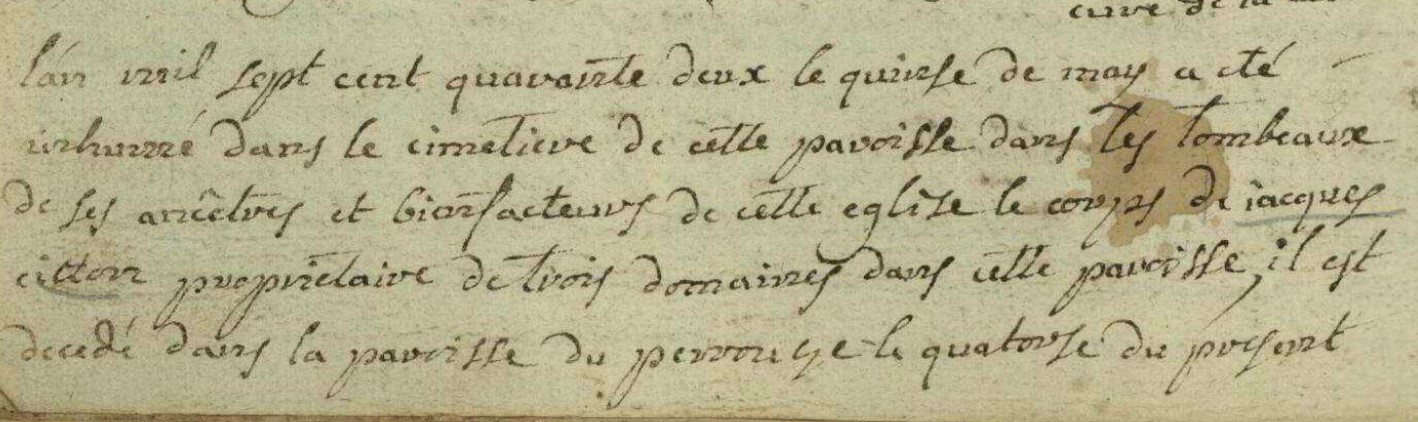 cure de la
l'an mil sept cent quarante deux le quinse de may a eté
inhumé dans le cimetiere de cette paroisse dans les tombeaux
de ses ancêtres et bienfacteurs de cette eglise le corps de jacques
citton proprietaire de trois domaines dans cette paroisse, il est
decedé dans la paroisse du perrouze le quatorse du present